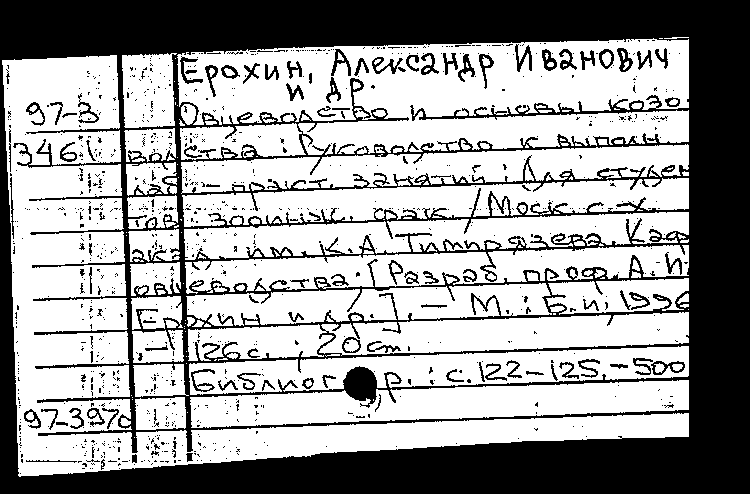 Ерохин, Александр Иванович
и др.
97-3 Овцеводство и основы козо
3461 водства : Руководство к выполн.
лаб.- практ. занятий : (Для студен
тов зооинж. фак. / Моск. с.-х.
акад. им. К.А. Тимирязева. Каф.
овцеводства; [Разраб. проф. А. И.
Ерохин и др.]. — М. : Б.и., 1996
.— 126 с. ; 20 cm.
Библиогр. : с. 122-125. - 500
97-397